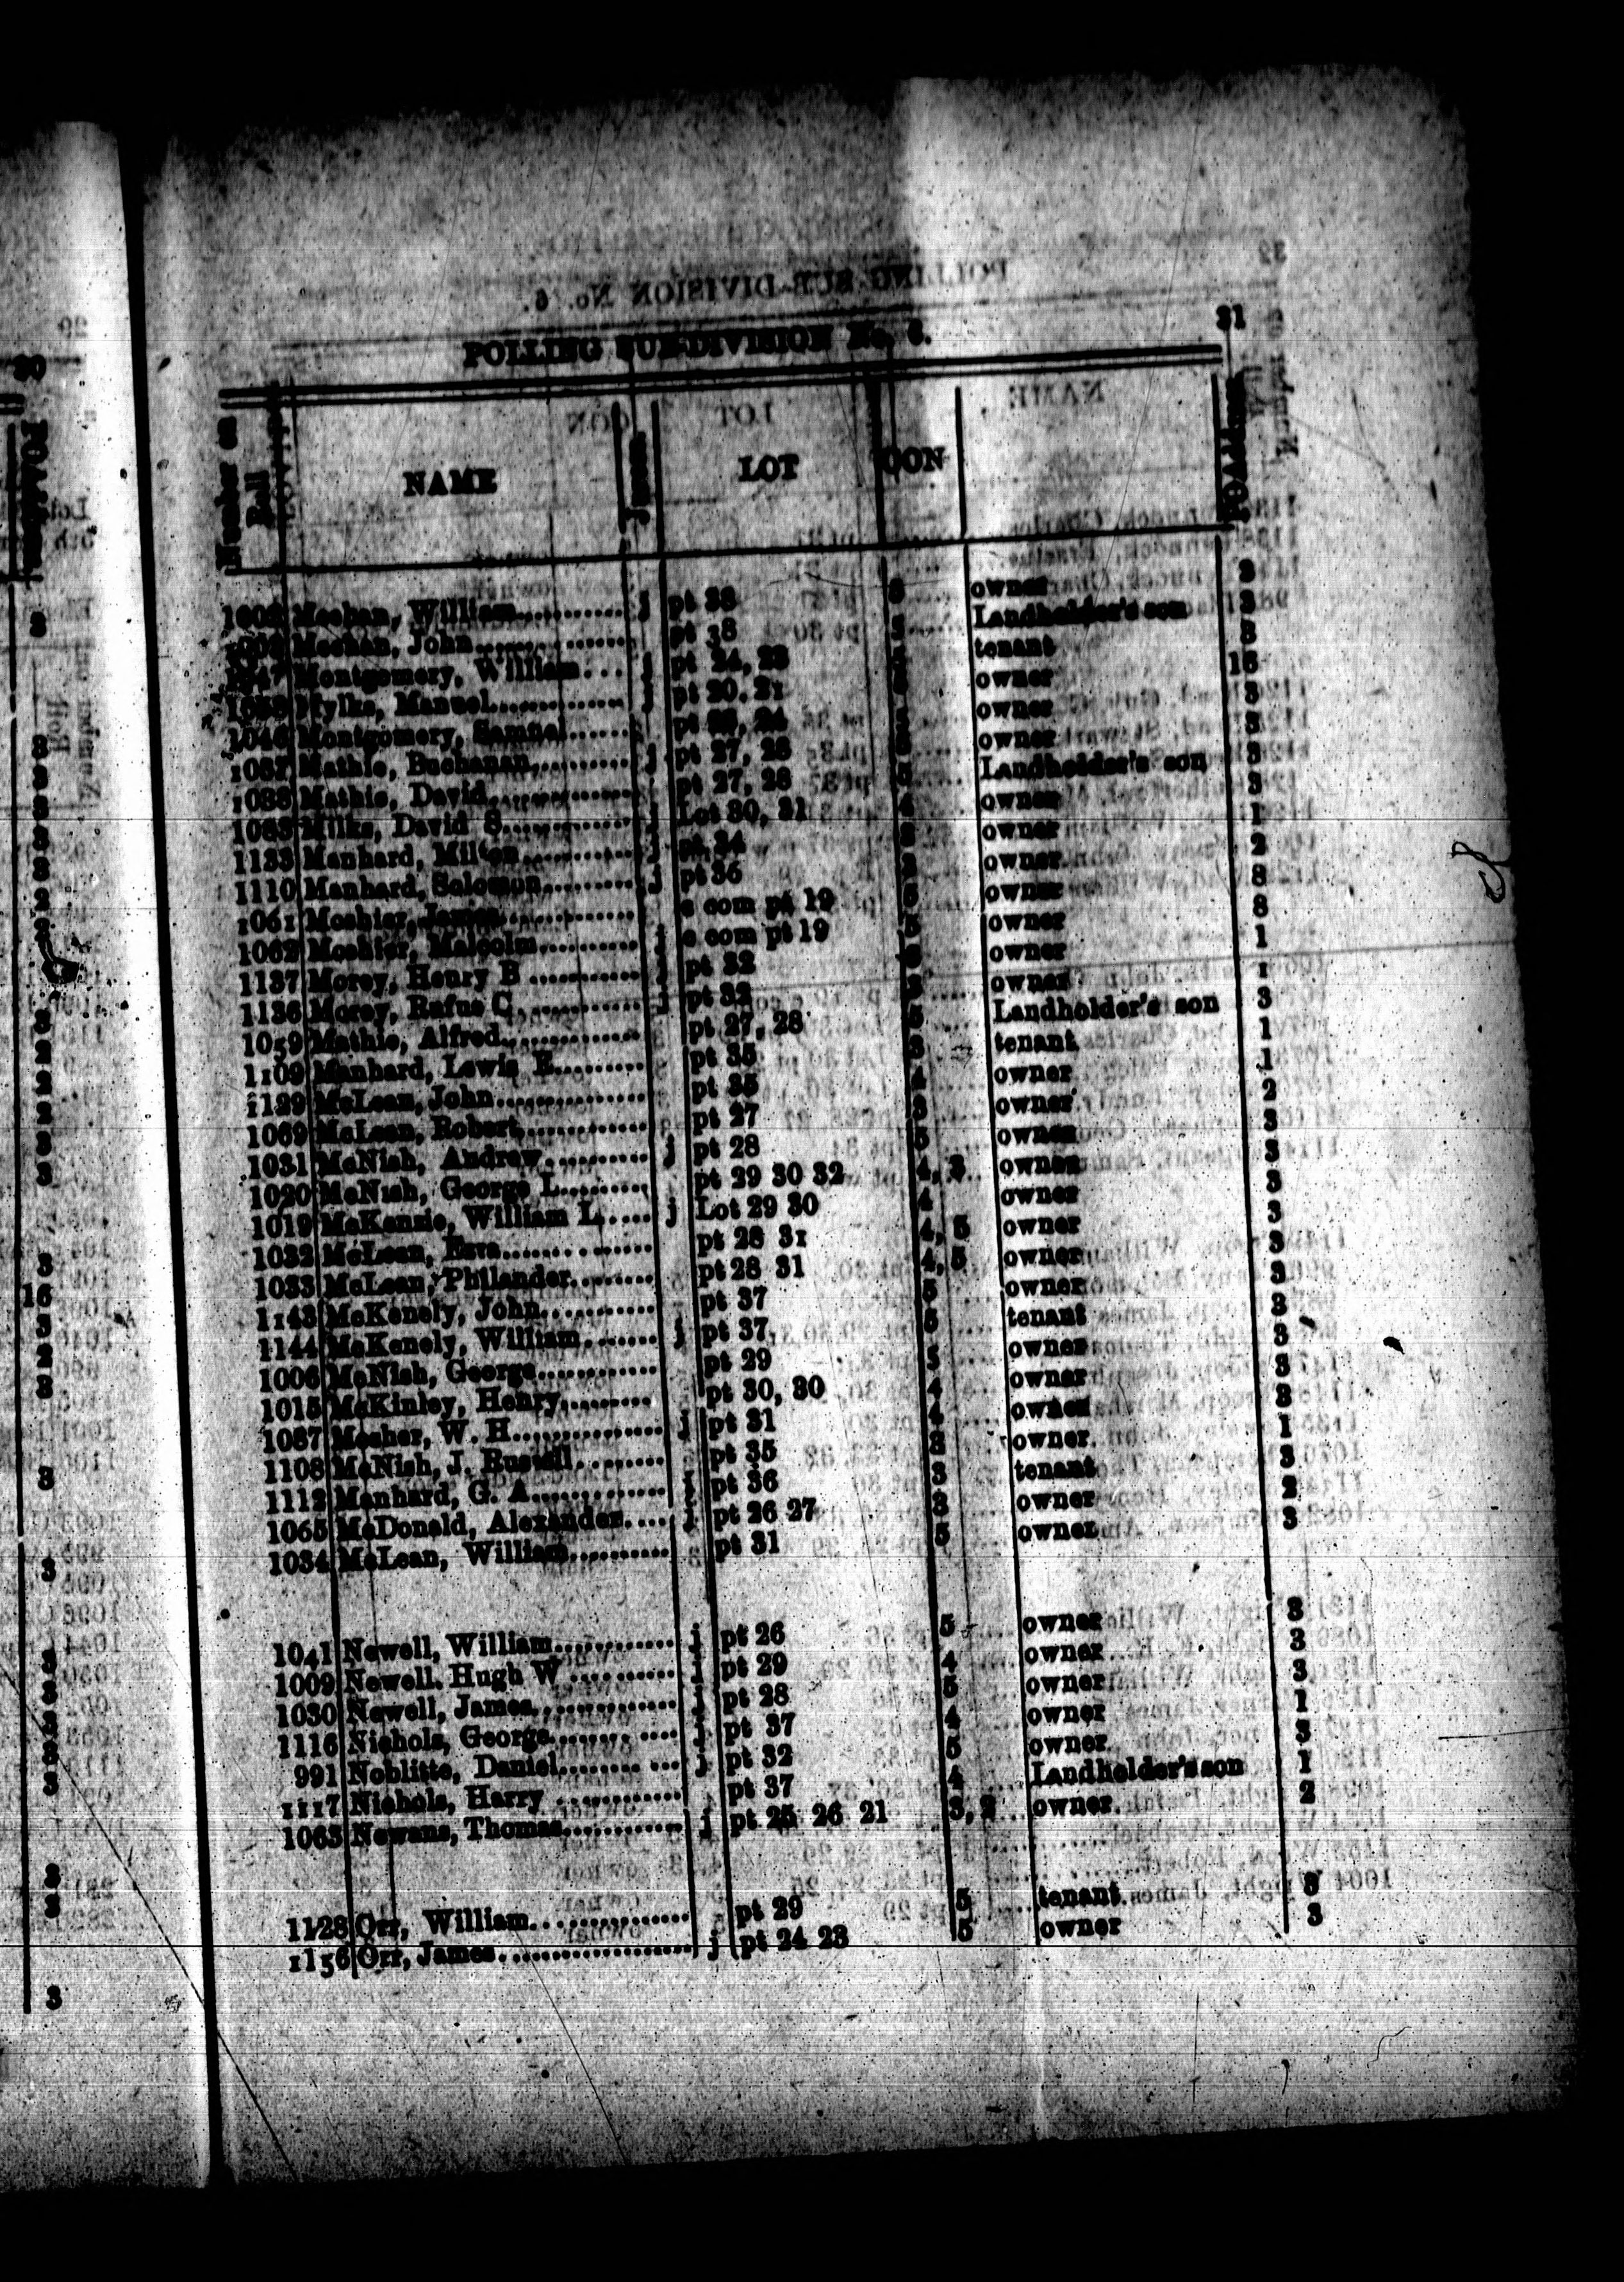 POLLING SUB-DIVISION No. 6. 31
Number on Roll NAME Jurors LOT CON P O Address
1002 Meehan, William j pt 38 5 owner 3
Meehan, John pt 38 Landholder's son 3
Montgomery, William j pt 24, 23 tenant 3
Mylks, Manuel j pt 20. 21 owner 16
1046 Montgomery, Samuel pt 23, 24 owner 3
1037 Mathie, Buchanan j pt 27, 28 owner 3
1038 Mathie, David pt 27, 28 5 Landholder's son 3
1083 Milks, David S j Lot 30, 31 4 owner 3
1133 Manhard, Milton j pt 34 owner 1
1110 Manhard, Solomon j pt 36 owner 2
1061 Moshier, James e com pt 19 5 owner 8
1062 Moshier, Malcolm j e com pt 19 5 owner 8
1137 Morey, Henry B j pt 32 owner 1
1136 Morey, Rufus C j pt 32 owner 1
1059 Mathie, Alfred pt 27, 28 5 Landholder's son 3
1109 Manhard, Lewis E pt 35 3 tenant 1
1129 McLean, John pt 35 owner 1
1069 McLean, Robert pt 27 3 owner 2
1031 McNish, Andrew j pt 28 5 owner 3
1020 McNish, George L pt 29 30 32 4, 3 owner 3
1019 McKenzie, William L j Lot 29 30 4 owner 3
1032 McLean, Ezra pt 28 31 4, 5 owner 3
1033 McLean, Philander pt 28 31 4, 5 owner 3
1143 McKenely, John pt 37 5 owner 3
1144 McKenely, William j pt 37 5 tenant 3
1006 McNish, George pt 29 5 owner 3
1015 McKinley, Henry pt 30, 30 4 owner 3
1087 Mosher, W. H j pt 31 4 owner 3
1108 McNish, J. Russell pt 35 3 owner 1
1112 Manhard, G. A j pt 36 3 tenant 3
1065 McDonald, Alexander j pt 26 27 3 owner 2
1034 McLean, William pt 31 5 owner 3
1041 Newell, William j pt 26 5 owner 3
1009 Newell. Hugh W j pt 29 4 owner 3
1030 Newell, James j pt 28 5 owner 3
1116 Nichols, George j pt 37 4 owner 1
991 Noblitte, Daniel j pt 32 5 owner 3
1117 Nichols, Harry pt 37 4 Landholder's son 1
1063 Newans, Thomas j pt 25 26 21 3, 2 owner 2
1128 Orr, William pt 29 5 tenant 3
1156 Orr, James j pt 24 23 5 owner 3